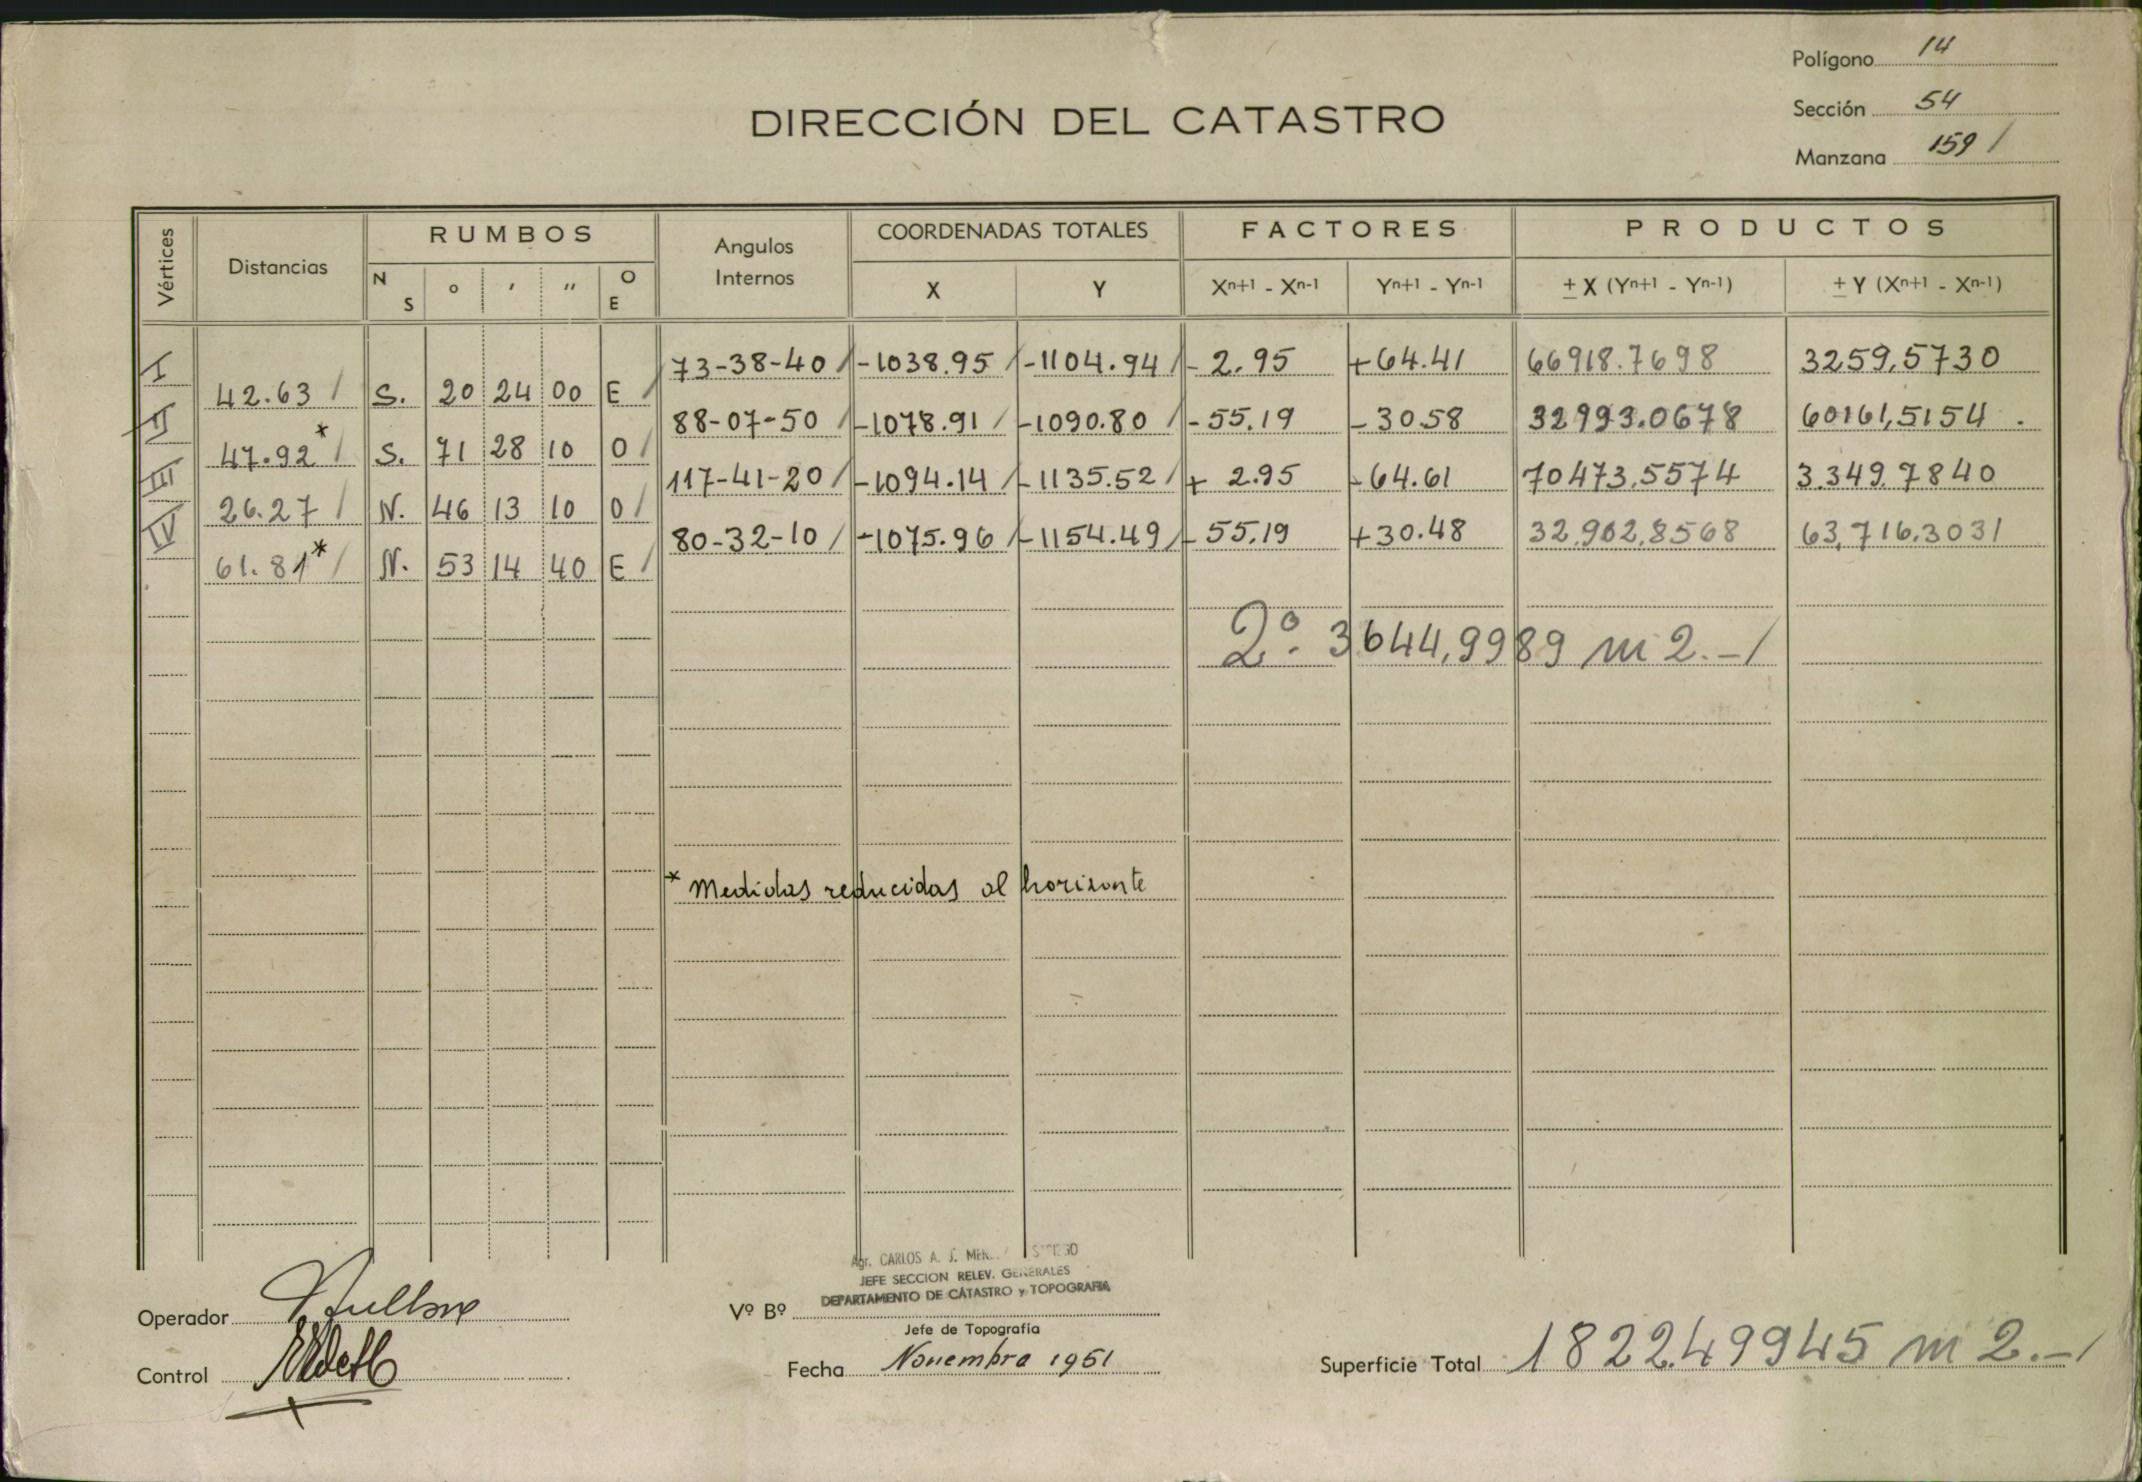 Polígono 14
DIRECCIÓN DEL CATASTRO
Sección 54
Manzana 159 /
Vértices Distancias RUMBOS Angulos Internos COORDENADAS TOTALES FACTORES PRODUCTOS
N S ° ' " O E X Y Xn+1 - Xn-1 Yn+1 - Yn-1 ± X (Yn+1 - Yn-1) ± Y (Xn+1 - Xn-1)
I 73-38-40 / -1038.95 / -1104.94 / - 2.95 +64.41 66918.7698 3259,5730
42.63 / S. 20 24 00 E /
II 88-07-50 / -1078.91 / -1090.80 / - 55.19 - 30.58 32993.0678 60161,5154 .
47.92* / S. 71 28 10 O /
III 117-41-20 / -1094.14 / -1135.52 / + 2.95 -64.61 70473,5574 3.349.7840
26.27 / N. 46 13 10 O /
IV 80-32-10 / -1075.96 / -1154.49 / - 55.19 +30.48 32.962,8568 63,716.3031
61.81* / N. 53 14 40 E /
2º. 3644,9989 m 2.- /
* Medidas reducidas al horizonte
Agr. CARLOS A. J.
JEFE SECCION RELEV. GENERALES
DEPARTAMENTO DE CATASTRO y TOPOGRAFIA
Operador
Vº Bº
Jefe de Topografía
Control
Fecha Novembro 1951
Superficie Total 1822.49945 m 2.- /